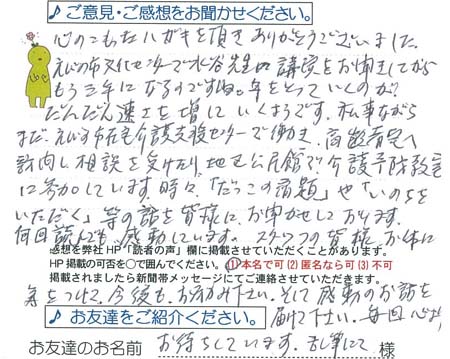 ♪ ご意見・ご感想をお聞かせください。
心のこもったハガキを頂きありがとうございました。
えびの市文化センターで水谷先生の講演をお聞きしてから
もう三年になるのですね。年をとっていくのが
だんだん速さを増していくようです。私事ながら
まだ、えびの市在宅介護支援センターで働き、高齢者宅へ
訪問し相談を受けたり地区公民館で介護予防教室
に参加しています。時々、「だっこの宿題」や「いのちを
いただく」等の話を皆様にお聞かせしております。
何回読んでも感動しています。スタッフの皆様、お体に
感想を弊社HP「読者の声」欄に掲載させていただくことがあります。
HP掲載の可否を○で囲んでください。(1)本名で可 (2) 匿名なら可 (3) 不可
掲載されましたら新聞帯メッセージにてご連絡させていただきます。
気をつけて、今後もお励み下さい。そして感動のお話を
届けて下さい。毎回心から
♪ お友達をご紹介ください。
お待ちしています。乱筆にて
お友達のお名前 様